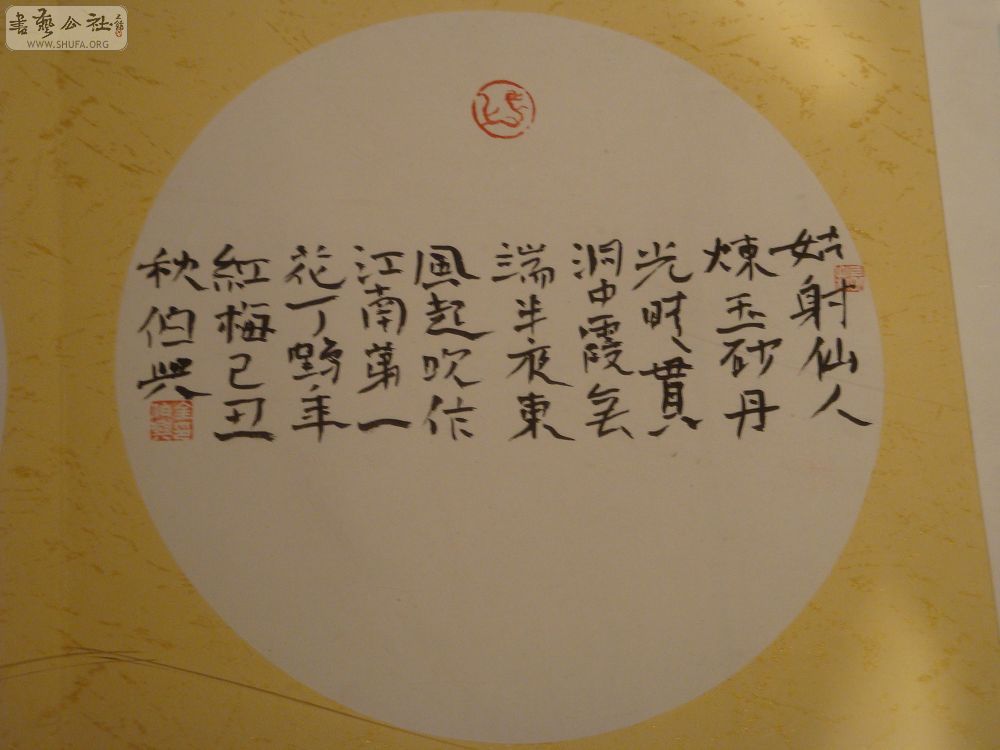 姑射仙人
煉玉砂丹
光時時貫
洞中霞無
端半夜東
風起吹作
江南第一
花丁鶴年
紅梅己丑
秋伯興
書藝公社
WWW.SHUFA.ORG